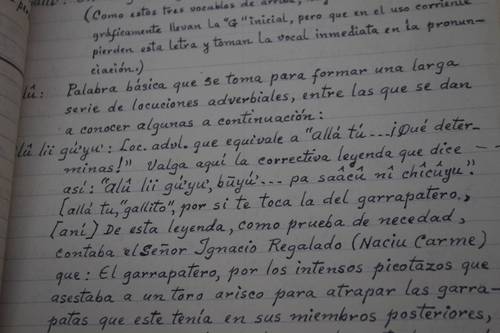 (Como estos tres vocables de arriba,
gráficamente llevan la "G" inicial, pero que en el uso corriente
pierden esta letra y toman la vocal inmediata en la pronun-
ciación.)
lû: Palabra básica que se toma para formar una larga
serie de locuciones adverbiales, entre las que se dan
a conocer algunas a continuación:
lû lii gú'yu': Loc. advl. que equivale a "allá tú...¡Qué deter-
minas!" Valga aquí la correctiva leyenda que dice --
así: "alû lii gú'yu', būyú'... pa saâcû nî chîcûyu".
[allá tu, "gallito", por si te toca la del garrapatero.,
[aní) De esta leyenda, como prueba de necedad,
contaba el Señor Ignacio Regalado (Naciu Carme)
que: El garrapatero, por los intensos picotazos que
asestaba a un toro arisco para atrapar las garra-
patas que este tenía en sus miembros posteriores,